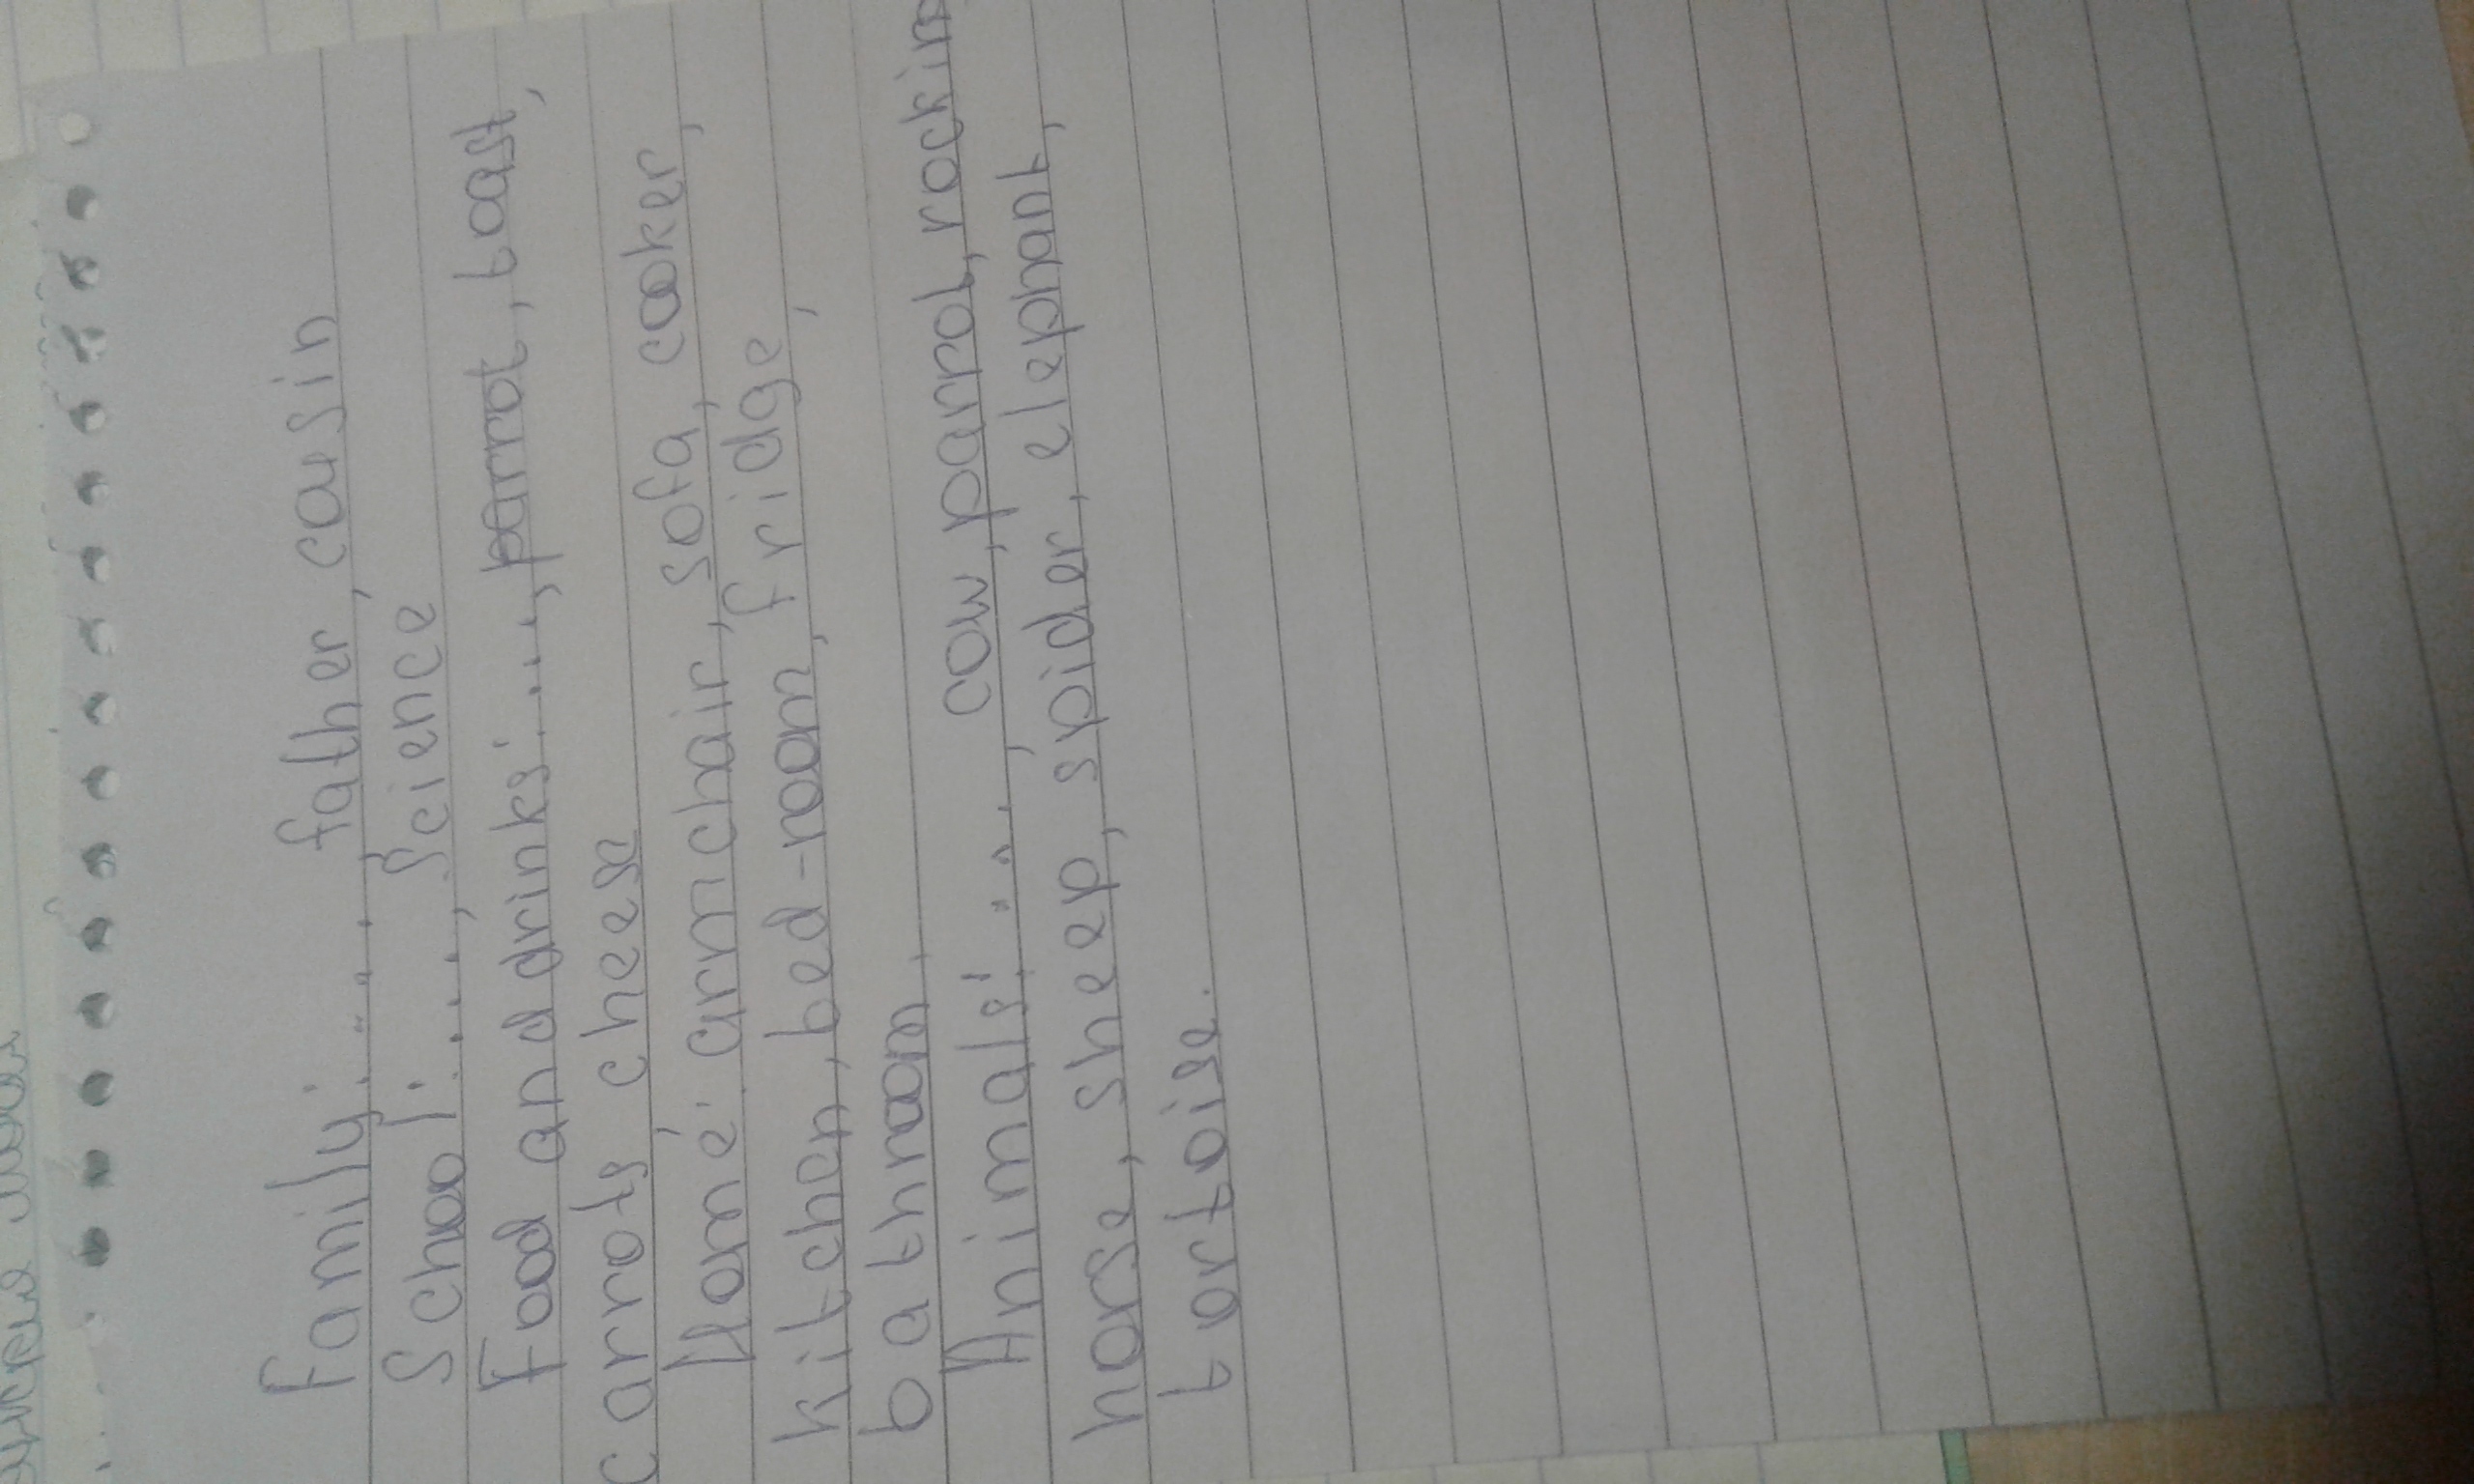 Family: ...., father, cousin
School: ...., Science
Food and drinks: ...., parrot, toast,
carrots, cheese
Home: armchair, sofa, cooker,
kitchen, bed-room, fridge,
bathroom.
Animals: ...., cow, parrot, rockin
horse, sheep, spider, elephant,
tortoise.